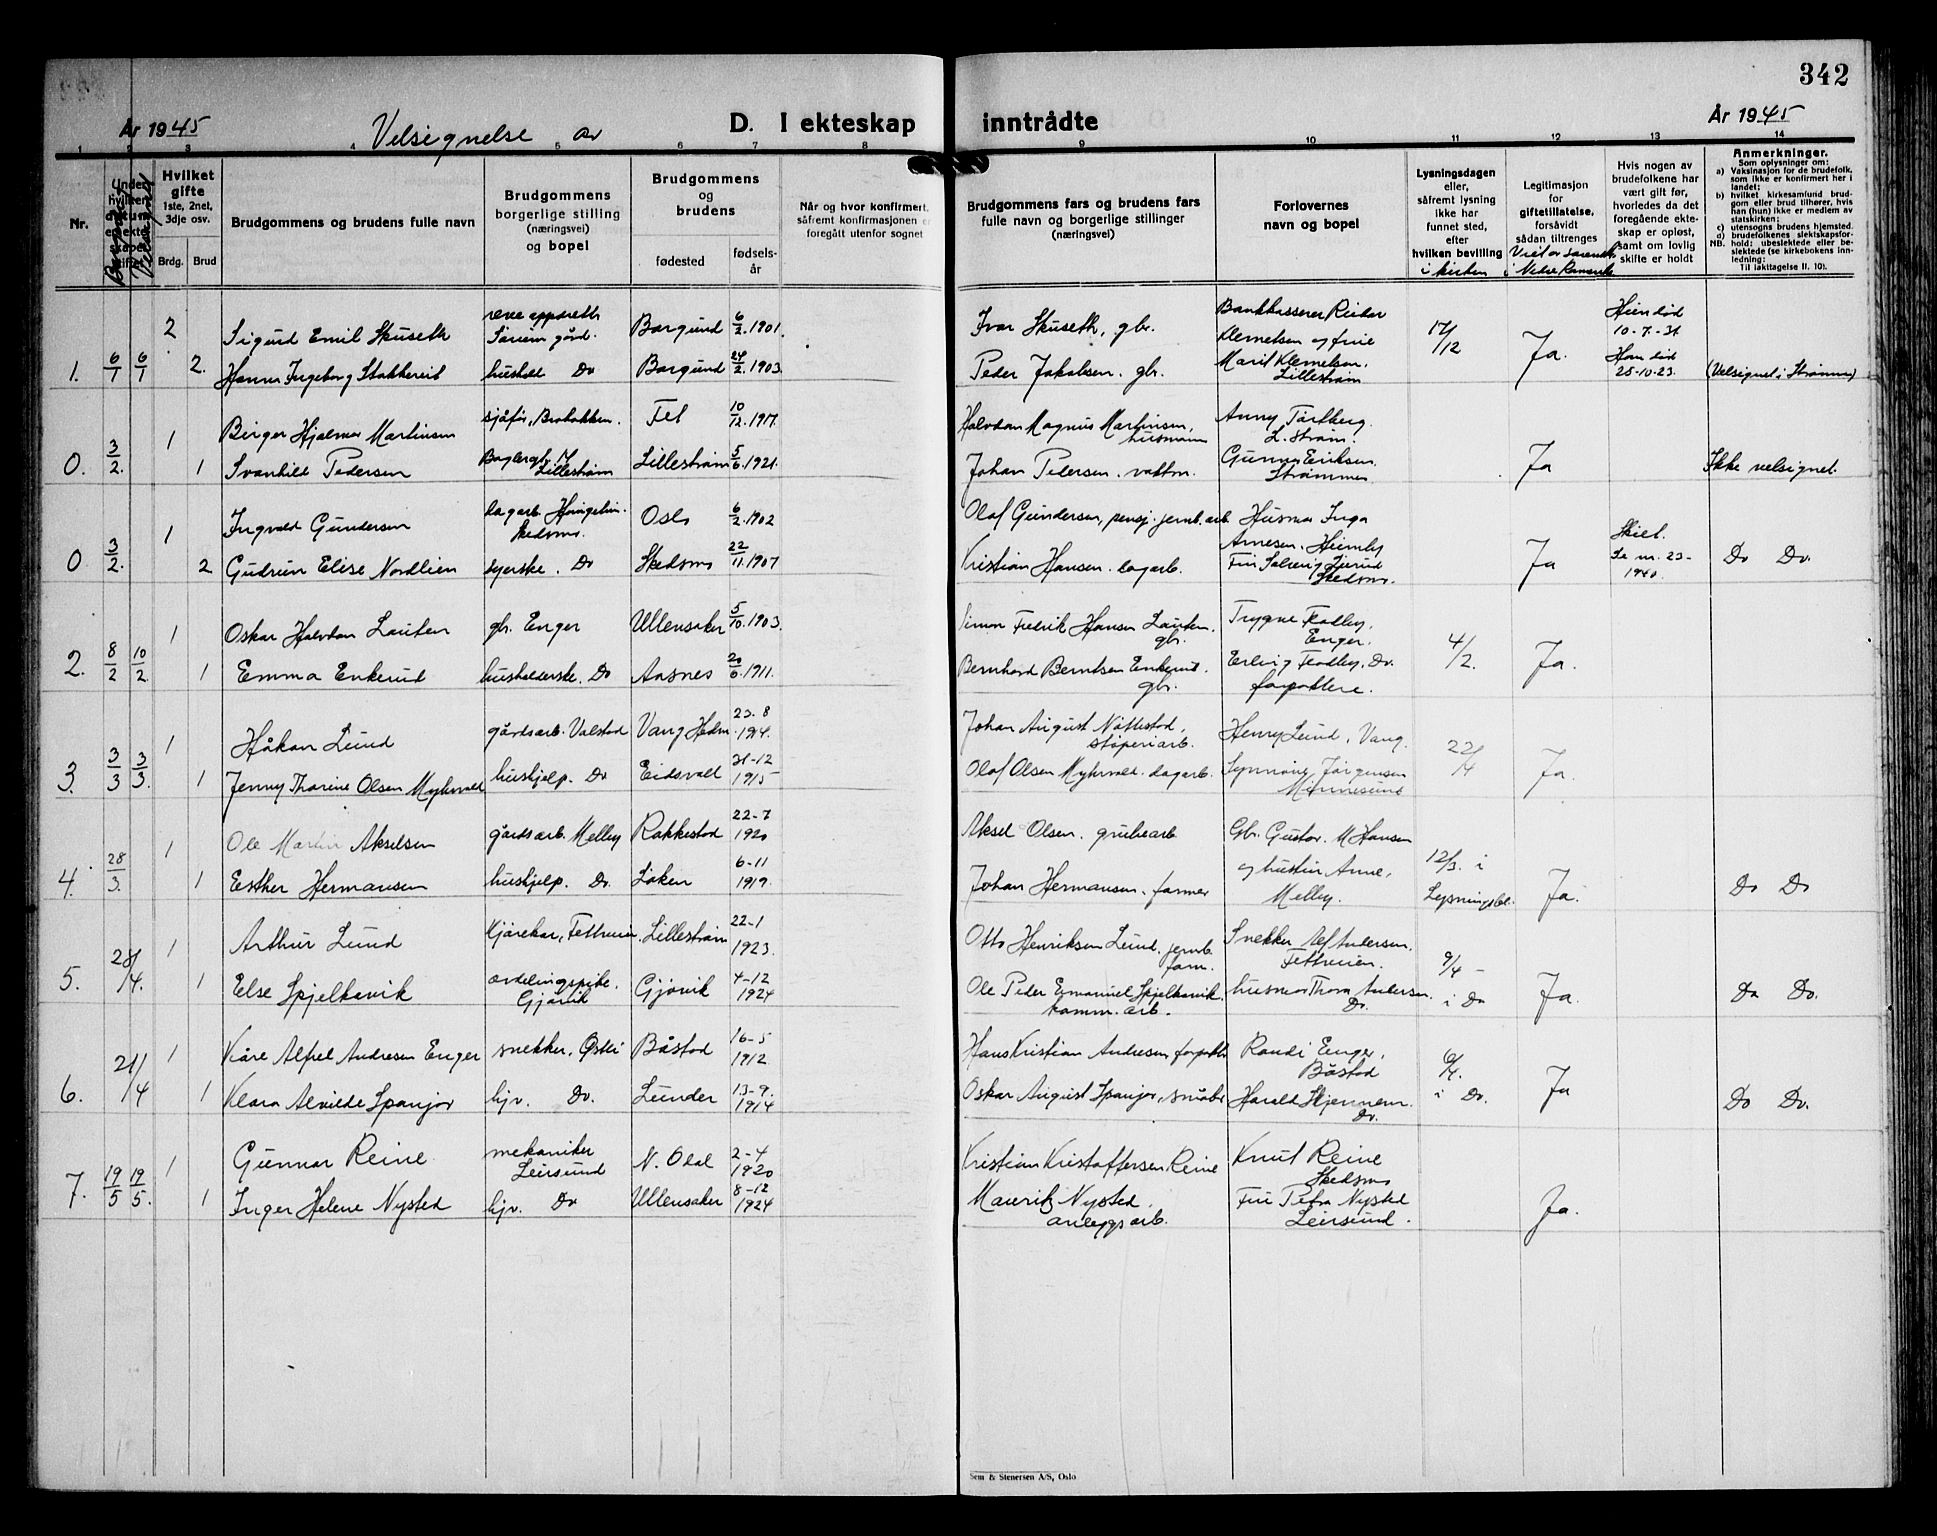 342
År 1945
Velsignelse av
D. I ekteskap inntrådte
År 1945
1 2 3 4 5 6 7 8 9 10 11 12 13 14
Nr.
Under hvilken datum er ekteskapet stiftet
Velsignet
Hvilket gifte
1ste, 2net, 3dje osv.
Brdg. Brud
Brudgommens og brudens fulle navn
Brudgommens borgerlige stilling (næringsvei) og bopel
Brudgommens og brudens
fødested
fødselsår
Når og hvor konfirmert,
såfremt konfirmasjonen er
foregått utenfor sognet
Brudgommens fars og brudens fars
fulle navn og borgerlige stillinger
(næringsvei)
Forlovernes
navn og bopel
Lysningsdagen
eller,
såfremt lysning
ikke har
funnet sted,
efter
hvilken bevilling
i kirken
Legitimasjon
for
giftetillatelse,
forsåvidt
sådan tiltrenges
Hvis nogen av
brudefolkene har
vært gift før,
hvorledes da det
foregående ekteskap er opløst,
samt om lovlig
skifte er holdt
Anmerkninger.
Som oplysninger om:
a) Vaksinasjon for de brudefolk,
som ikke er konfirmert her i
landet;
b) hvilket kirkesamfund brudgom eller brud tilhører, hvis
han (hun) ikke er medlem av
statskirken;
c) utensogns brudens hjemsted.
d) brudefolkenes slektskapsforhold: ubeslektede eller beslektede (se kirkebokens innledning:
NB. Til iakttagelse II. 10).
1. 6/1 6/1 2 Sigurd Emil Skuseth Borgund 6/2.1901. Ivar Skuseth, gbr. 17/12 Ja.
10-7-31
2. Hanna Ingeborg Stokkereit Do Borgund 24/2.1903. Peder Jakobsen. gbr. Marit Klemetsen, Lillestrøm
25-10-23. (Velsignet i Strømmen)
0. 3/2. 1 Birger Hjalmar Martinsen sjåfør, Fet 10/12.1917. Halvdan Magnus Martinsen, husmann Anny
L.strøm.
1 Svanhild Pedersen Lillestrøm Lillestrøm 5/6.1921. Johan Pedersen. vaktm. Gunnar Eriksen. Strømmen Ja Ikke velsignet.
0 3/2. 1 Ingvald Gundersen dagarb. Skedsmo. Oslo 6/2.1902 Olaf Gundersen, pensj. jernb.arb. Husmor Inga
Arnesen.
2 Gudrun Elise Nordlien syerske. Do Skedsmo 22/11.1907 Kristian Hansen. dagarb. Skedsmo. Ja
Skilt.
1940. Do Do.
2. 8/2 10/2. 1 Oskar Halvdan Lauten gbr. Enger Ullensaker 5/10.1903. Simon Fredrik Hansen Lauten. gbr. Trygve Flodby, Enger. 4/2. Ja.
1 Emma Enkerud husholderske. Do Aasnes 20/6.1911. Bernhard Berntsen Enkerud. gbr. Erling Flodby, Do. forpaktere.
3. 3/3 3/3. 1 Håkon Lund gårdsarb. Valstad Vang Hedm. 23-8 1914. Johan August Nøttestad, støperiarb. Henry Lund, Vang. Ja.
1 Jenny Thorine Olsen Myhrvold hushjelp. Do Eidsvoll 31-12 1915 Olaf Olsen Myhrvold. dagarb. Synnøve Jørgensen Minnesund
4. 28/3. 1 Ole Martin Akselsen gårdsarb. Melleby Rakkestad 22-7 1920 Aksel Olsen. grubearb Gbr. Gustav. M Hansen
og hustru Anne, Melleby. 12/3. i Lysningsbl.
1 Esther Hermansen hushjelp. Do. Løken 6-11 1919. Johan Hermansen. farmer Ja. Do Do
5. 28/4. 1 Arthur Lund Kjørekar, Fettveien. Lillestrøm 22-1 1923. Otto Henriksen Lund. jernb. Snekker Alf Andersen. Fettveien. 9/4 -
1 Else Spjelkavik avdelingspike. Gjøvik Gjøvik 4-12 1924 Ole Peder Emanuel Spjelkavik. komm.arb. husmor Thora Andersen. Do. i Do Ja. Do Do.
6. 21/4 1 Kåre Alfred Andresen Enger snekker. Østli Båstad 16-5 1912 Hans Kristian Andresen, forpakter Randi Enger, Båstad 6/4.
1 Klara Alvilde Spanjor hjv. Do. Lunder 13-9. 1914 Oskar August Spanjor, småbr Harald Skjennem. Do. i Do. Ja Do Do.
7. 19/5 19/5. 1 Gunnar Reine mekaniker Leirsund N. Odal 2-4 1920 Kristian Kristoffersen Reine Knut Reine Skedsmo
1 Inger Helene Nysted hjv. Do Ullensaker 8-12 1924 Mauritz Nysted. anleggsarb. Fru Petra Nysted Leirsund. Ja.
Sem & Stenersen A/S, Oslo